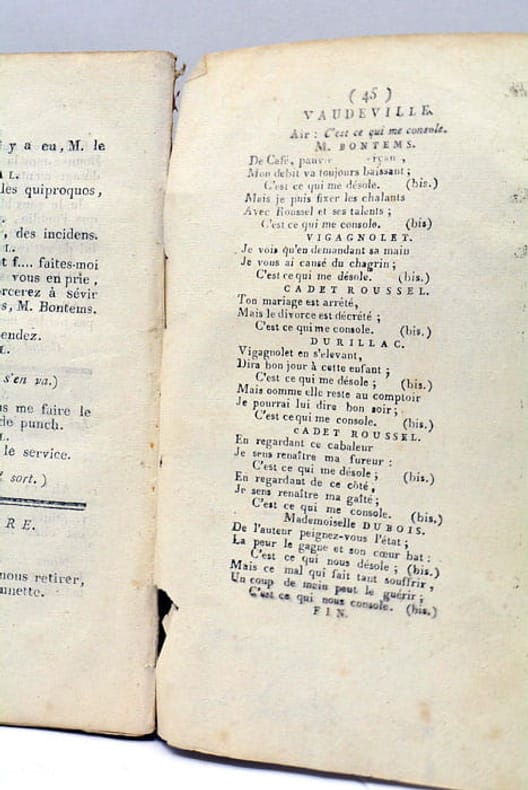 y a eu, M. le
L.
les quiproquos,
, des incidens.
L.
t f.... faites-moi
vous en prie,
rcerez à sévir
s, M. Bontems.
endez.
L.
s'en va.)
us me faire le
de punch.
L.
le service.
sort.)
R E.
nous retirer,
nnette.
( 45 )
VAUDEVILLE.
Air : C'est ce qui me console.
M. BONTEMS.
De Café, pauvre garçon,
Mon débit va toujours baissant;
C'est ce qui me désole. (bis.)
Mais je puis fixer les chalants
Avec Roussel et ses talents;
C'est ce qui me console. (bis)
VIGAGNOLET.
Je vois qu'en demandant sa main
Je vous ai causé du chagrin;
C'est ce qui me désole. (bis.)
CADET ROUSSEL.
Ton mariage est arrêté,
Mais le divorce est décrété;
C'est ce qui me console. (bis.)
DURILLAC.
Vigagnolet en s'elevant,
Dira bon jour à cette enfant;
C'est ce qui me désole; (bis.)
Mais oomme elle reste au comptoir
Je pourrai lui dire bon soir;
C'est ce qui me console. (bis.)
CADET ROUSSEL.
En regardant ce cabaleur
Je sens renaître ma fureur:
C'est ce qui me désole; (bis.)
En regardant de ce côté,
Je sens renaître ma gaîté;
C'est ce qui me console. (bis.)
Mademoiselle DUBOIS.
De l'auteur peignez-vous l'état;
La peur le gagne et son cœur bat:
C'est ce qui nous désole; (bis.)
Mais ce mal qui fait tant souffrir,
Un coup de main peut le guérir;
C'est ce qui nous console. (bis.)
FIN.